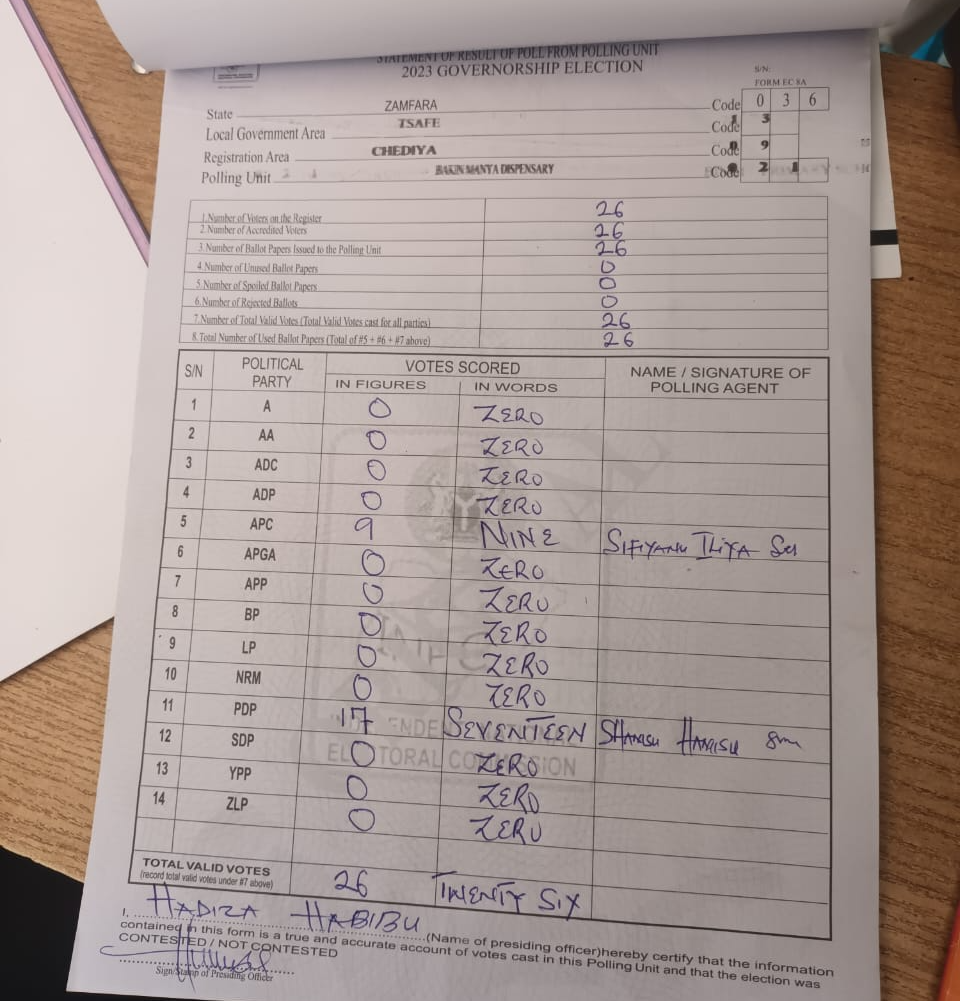 STATEMENT OF RESULT OF POLL FROM POLLING UNIT
2023 GOVERNORSHIP ELECTION
S/N:
FORM EC 8A
State ZAMFARA Code 0 3 6
Local Government Area TSAFE Code 1 3
Registration Area CHEDIYA Code 0 9
Polling Unit BAKIN MANYA DISPENSARY Code 0 2 1
1.Number of Voters on the Register 26
2.Number of Accredited Voters 26
3.Number of Ballot Papers Issued to the Polling Unit 26
4.Number of Unused Ballot Papers 0
5.Number of Spoiled Ballot Papers 0
6.Number of Rejected Ballots 0
7.Number of Total Valid Votes (Total Valid Votes cast for all parties) 26
8.Total Number of Used Ballot Papers (Total of #5 + #6 + #7 above) 26
S/N POLITICAL PARTY VOTES SCORED NAME / SIGNATURE OF POLLING AGENT
IN FIGURES IN WORDS
1 A 0 ZERO
2 AA 0 ZERO
3 ADC 0 ZERO
4 ADP 0 ZERO
5 APC 9 NINE SIFIYANU ILIYA
6 APGA 0 ZERO
7 APP 0 ZERO
8 BP 0 ZERO
9 LP 0 ZERO
10 NRM 0 ZERO
11 PDP 17 SEVENTEEN
12 SDP 0 ZERO
13 YPP 0 ZERO
14 ZLP 0 ZERO
TOTAL VALID VOTES 26 TWENTY SIX
(record total valid votes under #7 above)
I, HADIZA HABIBU (Name of presiding officer)hereby certify that the information
contained in this form is a true and accurate account of votes cast in this Polling Unit and that the election was
CONTESTED / NOT CONTESTED
Sign/Stamp of Presiding Officer